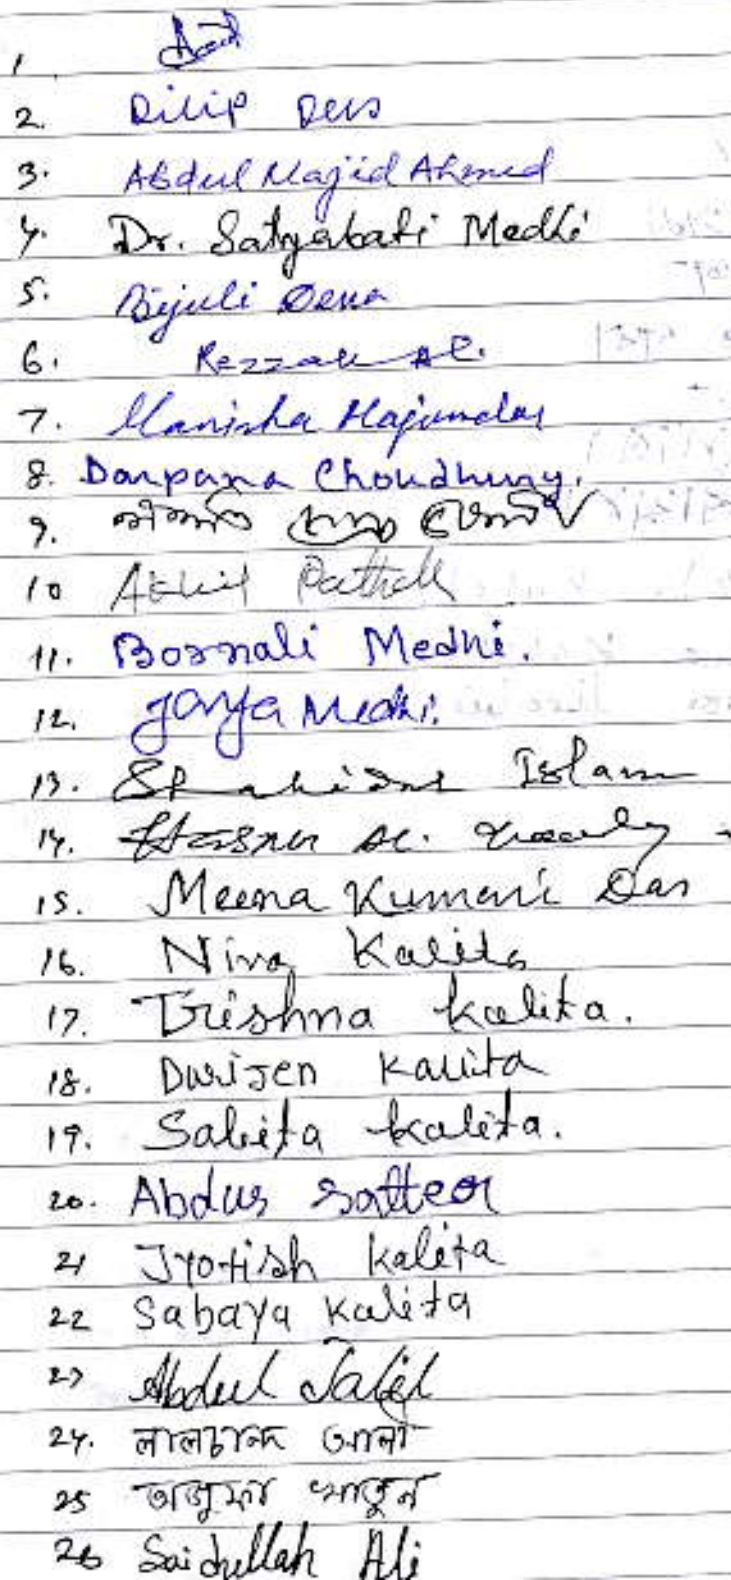 1.
2. Dilip Das
3. Abdul Majid Ahmed
4. Dr. Satyabati Medhi
5. Bijuli Deka
6. Rezzak Al.
7. Manisha Majumdar
8. Darpana Choudhury.
9.
10 Akhil Pathak
11. Bornali Medhi.
12. Jaya Medhi.
13. Shahidul Islam
14. Al.
15. Meena Kumari Das
16. Niva Kalita
17. Trishna Kalita.
18. Dwijen Kalita
19. Sabita Kalita.
20. Abdus Satter
21 Jyotish Kalita
22 Sabaya Kalita
23 Abdul Jalil
24. লালচান্দ আলী
25 খাতুন
26 Saidullah Ali